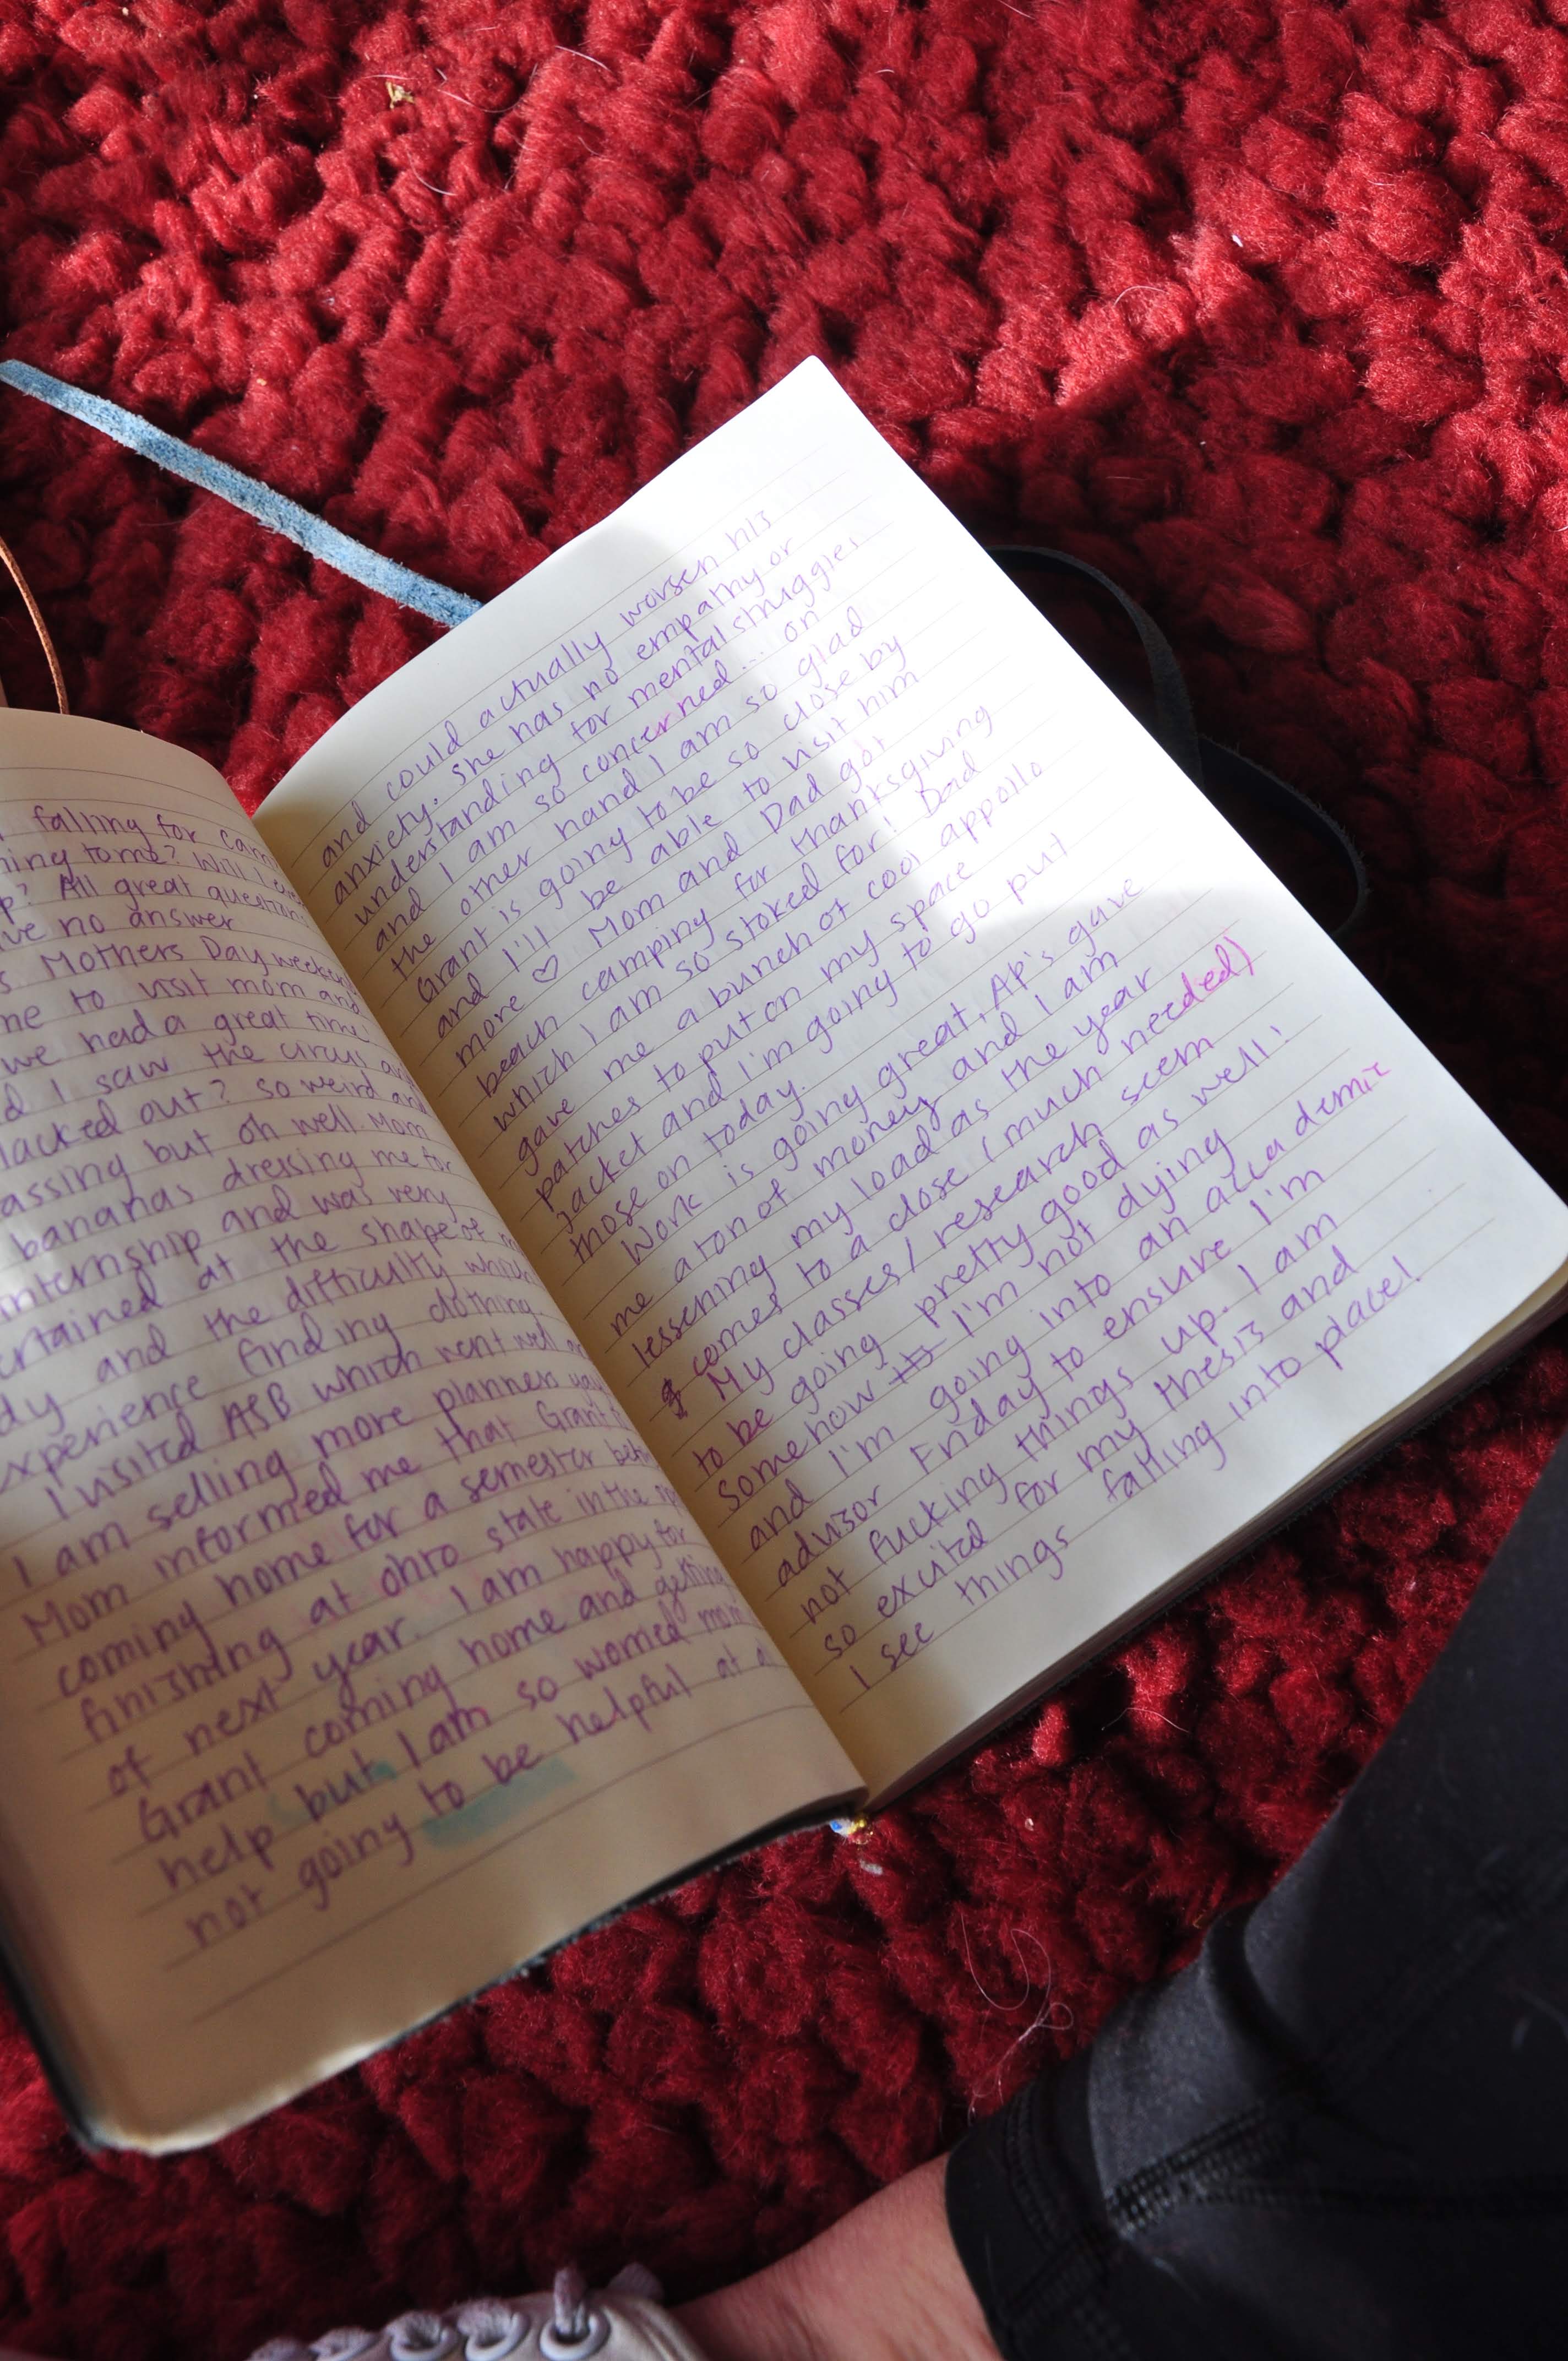 falling for Cam
to me? Will I eve
p? All great question
ve no answer
s Mothers Day weeken
me to visit mom and
we had a great time!
d I saw the circus an
lacked out? so weird and
assing but oh well. Mom
bananas dressing me for
internship and was very
ertained at the shape of m
dy and the difficulty which
experience finding clothing.
I visited ASB which went well an
I am selling more planners yay
Mom informed me that Grant
coming home for a semester
finishing at ohio state in the
of next year. I am happy for
Grant coming home and getting
help but I am so worried mom
not going to be helpful at a
and could actually worsen his
anxiety. She has no empathy or
understanding for mental struggles
and I am so concerned... on
the other hand I am so glad
Grant is going to be so close by
and I'll be able to visit him
more ♡ Mom and Dad got
beach camping for thanksgiving
which I am so stoked for! Dad
gave me a bunch of cool appollo
patches to put on my space
jacket and I'm going to go put
those on today.
Work is going great, AP's gave
me a ton of money and I am
lessening my load as the year
comes to a close (much needed)
My classes/research seem
to be going pretty good as well!
Somehow its I'm not dying
and I'm going into an accademic
advisor Friday to ensure I'm
not fucking things up. I am
so excited for my thesis and
I see things falling into place!